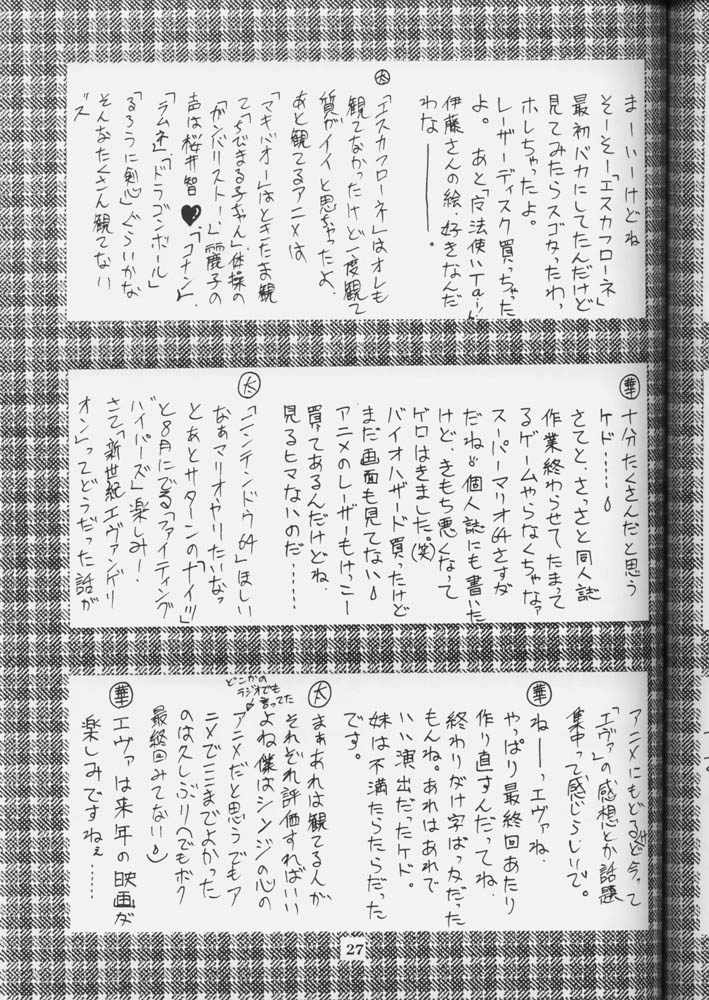 まーいーけどね
そーそー「エスカフローネ」
最初バカにしてたんだけど
見てみたらスゴかったわっ
ホレちゃったよ。
レーザーディスク買っちゃった
よ。あと「魔法使いTai!」
伊藤さんの絵、好きなんだ
わな―――。
大
「エスカフローネ」はオレも
観てなかったけど一度観て
質がイイと思っちゃったよ、
あと観てるアニメは
「マキバオー」はときたま観
て、「ちびまる子ちゃん」、体操の
「ガンバリスト!」麗子の
声は桜井智♥「コナン」、
「ラムネ」「ドラゴンボール」
「るろうに剣心」ぐらいかな
そんなたくさん観てない
ス
華
十分たくさんだと思う
ケド……
さてと、さっさと同人誌
作業終わらせて、たまって
るゲームやらなくちゃなァ
スーパーマリオ64さすが
だね 個人誌にも書いた
けど、きもち悪くなって
ゲロはきました。(笑)
バイオハザード買ったけど
まだ画面も見てない
アニメのレーザーもけっこー
買ってあるんだけどね、
見るヒマないのだ……
大
「ニンテンドウ64」ほしい
なぁマリオやりたいなっ
とあとサターンの「ナイツ」
と8月にでる「ファイティング
バイパーズ」楽しみー!
さて「新世紀エヴァンゲリ
オン」ってどうだった話が
アニメにもどるけど今って
「エヴァ」の感想とか話題
集中って感じらしいで。
華
ねーーっエヴァね、
やっぱり最終回あたり
作り直すんだってね、
終わりがけ字ばっかだった
もんね。あれはあれで
いい演出だったケド。
妹は不満たらたらだった
です。
大
まぁあれは観てる人が
それぞれ評価すればいい
よね僕はシンジの心の
どこかの
ラジオでも
言ってた
アニメだと思うでもア
ニメでここまでよかった
のは久しぶりへでもボク
最終回みてない
華
エヴァは来年の映画が
楽しみですねぇ……
27